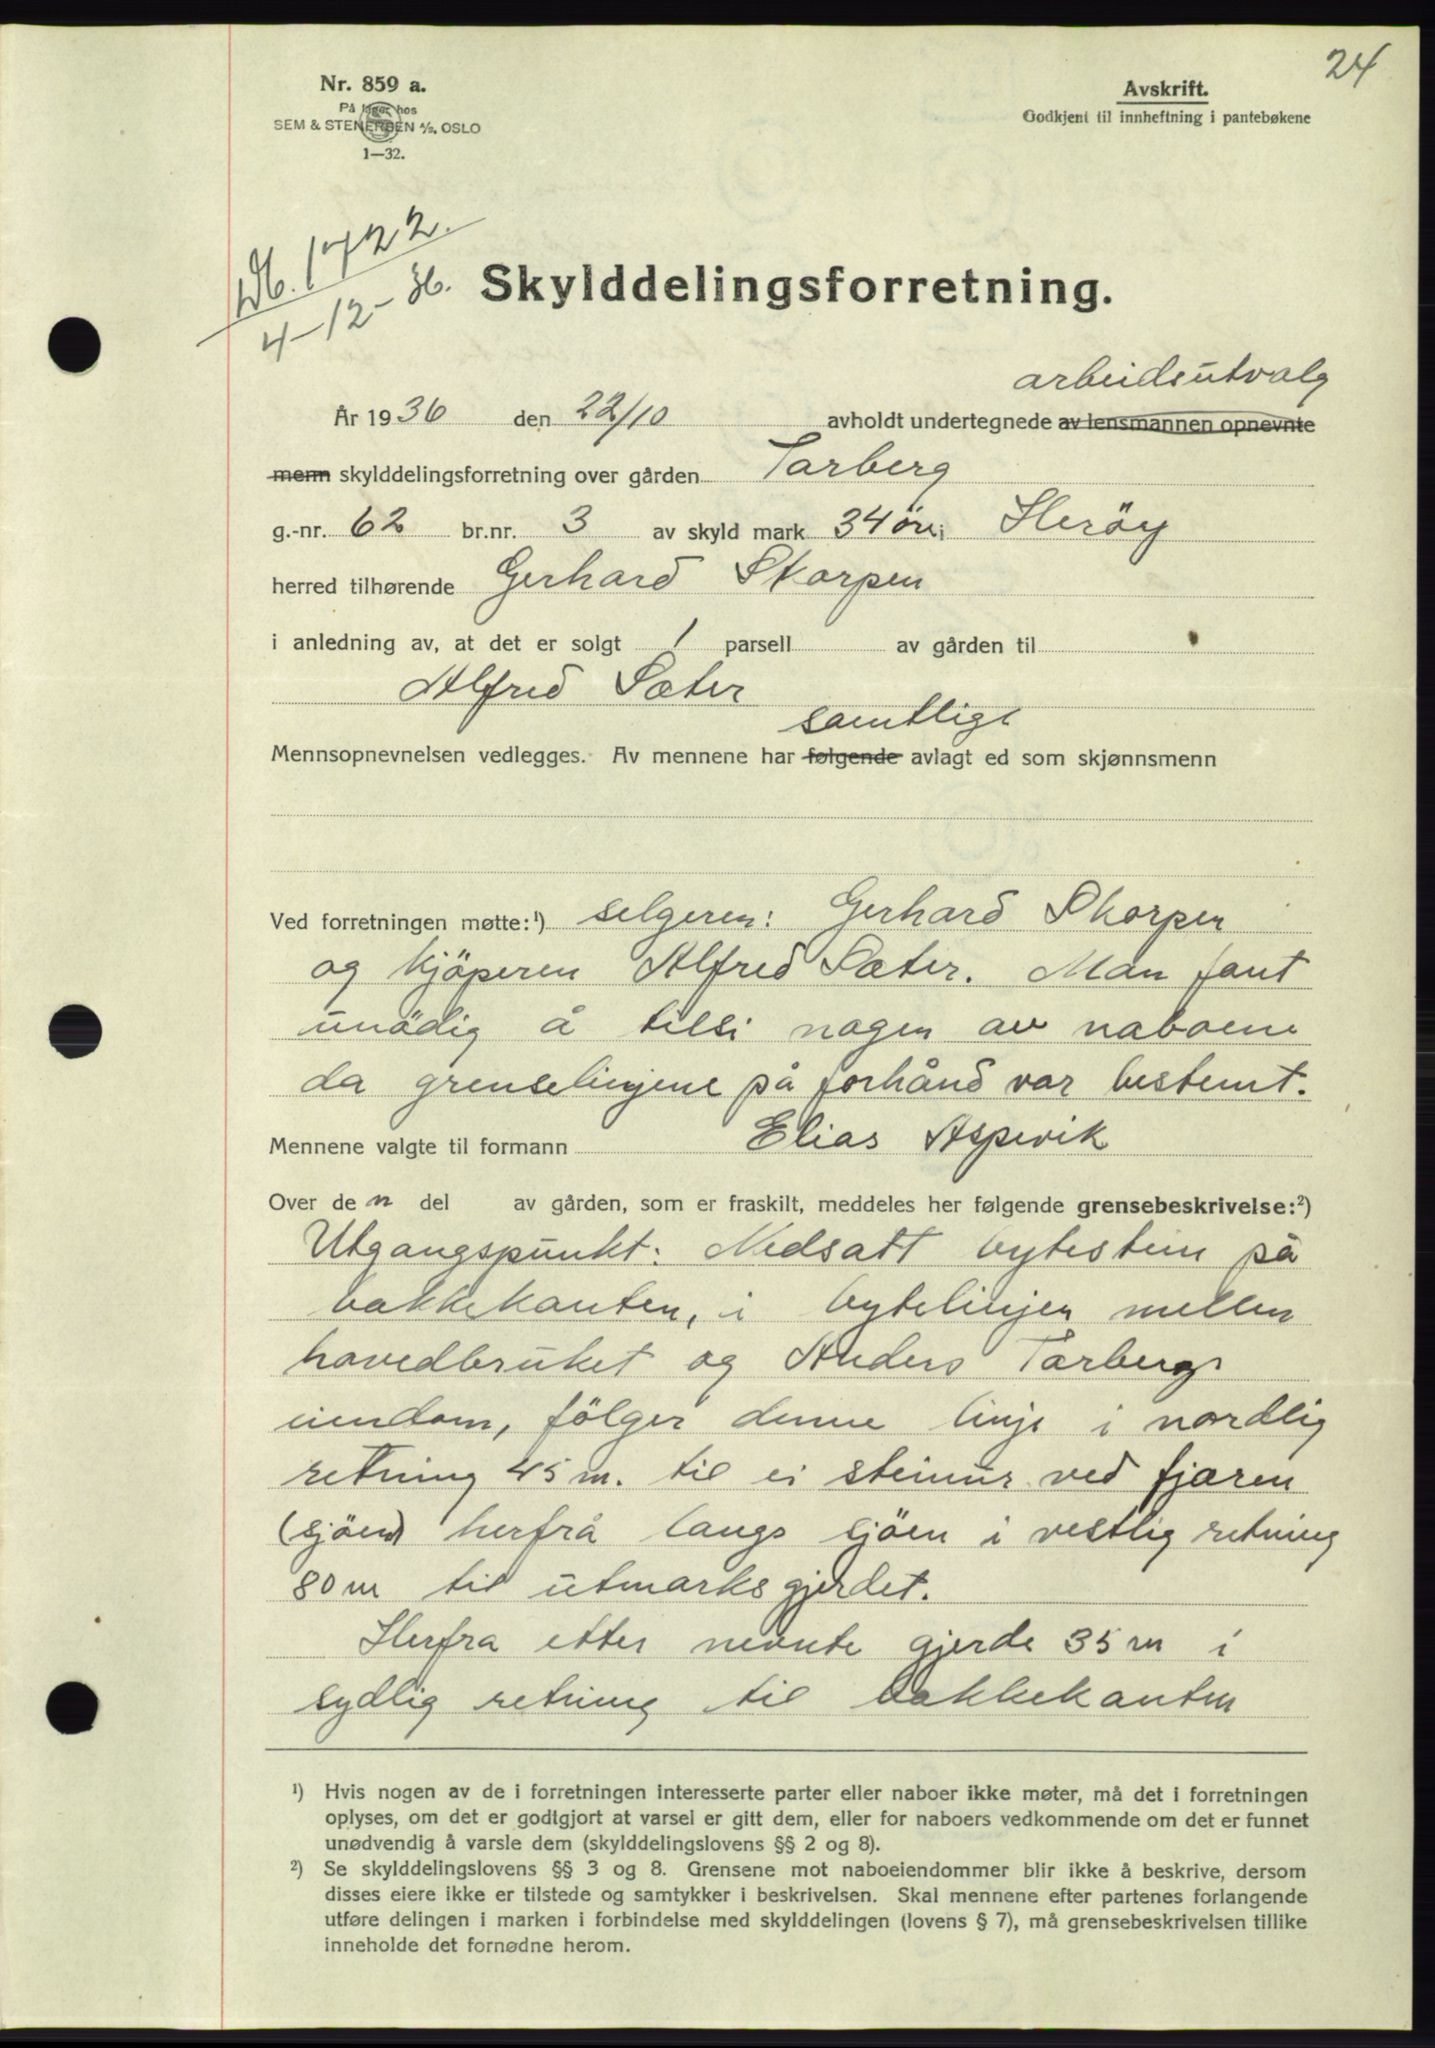 24
Nr. 859 a.
På lager hos
SEM & STENERSEN A/S, OSLO
1—32.
Avskrift.
Godkjent til innheftning i pantebøkene
Db. 1722.
4-12-36.
Skylddelingsforretning.
arbeidsutvalg
År 1936 den 22/10 avholdt undertegnede av lensmannen opnevnte
menn skylddelingsforretning over gården Tarberg
g.-nr. 62 br.nr. 3 av skyld mark 34 øre i Heröy
herred tilhørende Gerhard Skorpen
i anledning av, at det er solgt 1 parsell av gården til
Alfred Sæter
samtlige
Mennsopnevnelsen vedlegges. Av mennene har følgende avlagt ed som skjønnsmenn
Ved forretningen møtte:¹) selgeren: Gerhard Skorpen
og kjöperen Alfred Sæter. Man fant
unödig å tilsi nogen av naboene
da grenselinjene på forhånd var bestemt.
Mennene valgte til formann Elias Aspevik
Over de n del av gården, som er fraskilt, meddeles her følgende grensebeskrivelse:²)
Utgangspunkt: Nedsatt bytestein på
bakkekanten, i bytelinjen mellem
hovedbruket og Anders Tarbergs
eiendom, fölger denne linje i nordlig
retning 45 m. til ei steinur ved fjæren
(sjöen) herfrå langs sjöen i vestlig retning
80 m til utmarksgjerdet.
Herfra etter nevnte gjerde 35 m i
sydlig retning til bakkekanten
¹) Hvis nogen av de i forretningen interesserte parter eller naboer ikke møter, må det i forretningen
oplyses, om det er godtgjort at varsel er gitt dem, eller for naboers vedkommende om det er funnet
unødvendig å varsle dem (skylddelingslovens §§ 2 og 8).
²) Se skylddelingslovens §§ 3 og 8. Grensene mot naboeiendommer blir ikke å beskrive, dersom
disses eiere ikke er tilstede og samtykker i beskrivelsen. Skal mennene efter partenes forlangende
utføre delingen i marken i forbindelse med skylddelingen (lovens § 7), må grensebeskrivelsen tillike
inneholde det fornødne herom.